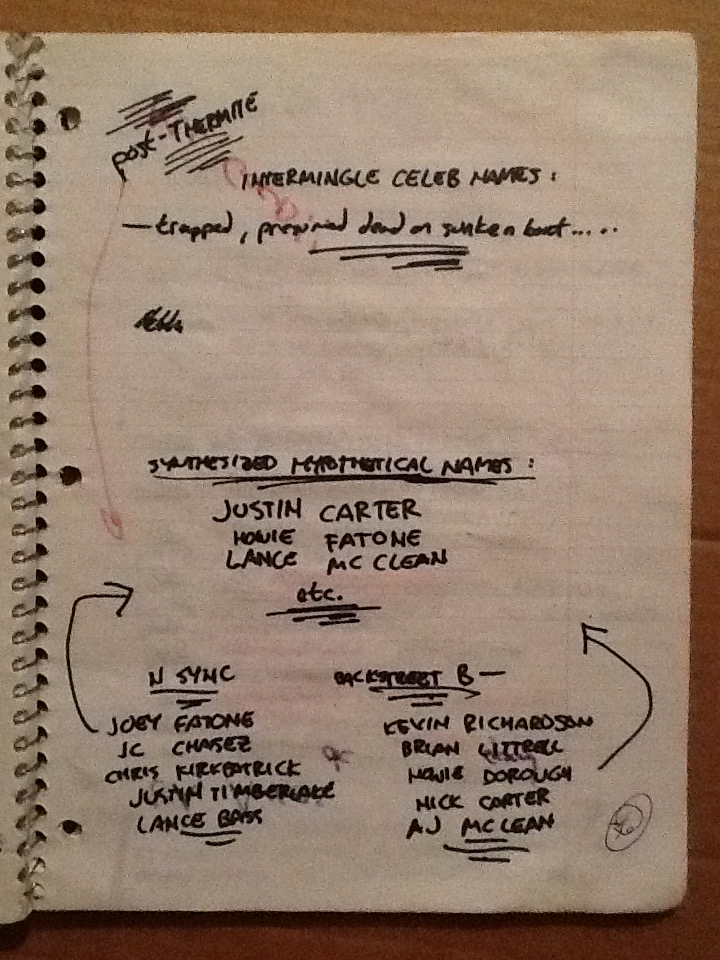 post-THERMITE
INTERMINGLE CELEB NAMES:
— trapped, presumed dead on sunken boat.....
SYNTHESIZED HYPOTHETICAL NAMES:
JUSTIN CARTER
HOWIE FATONE
LANCE MC CLEAN
etc.
N SYNC
BACKSTREET B—
JOEY FATONE
JC CHASEZ
CHRIS KIRKPATRICK
JUSTIN TIMBERLAKE
LANCE BASS
KEVIN RICHARDSON
BRIAN LITTRELL
HOWIE DOROUGH
NICK CARTER
AJ MCLEAN